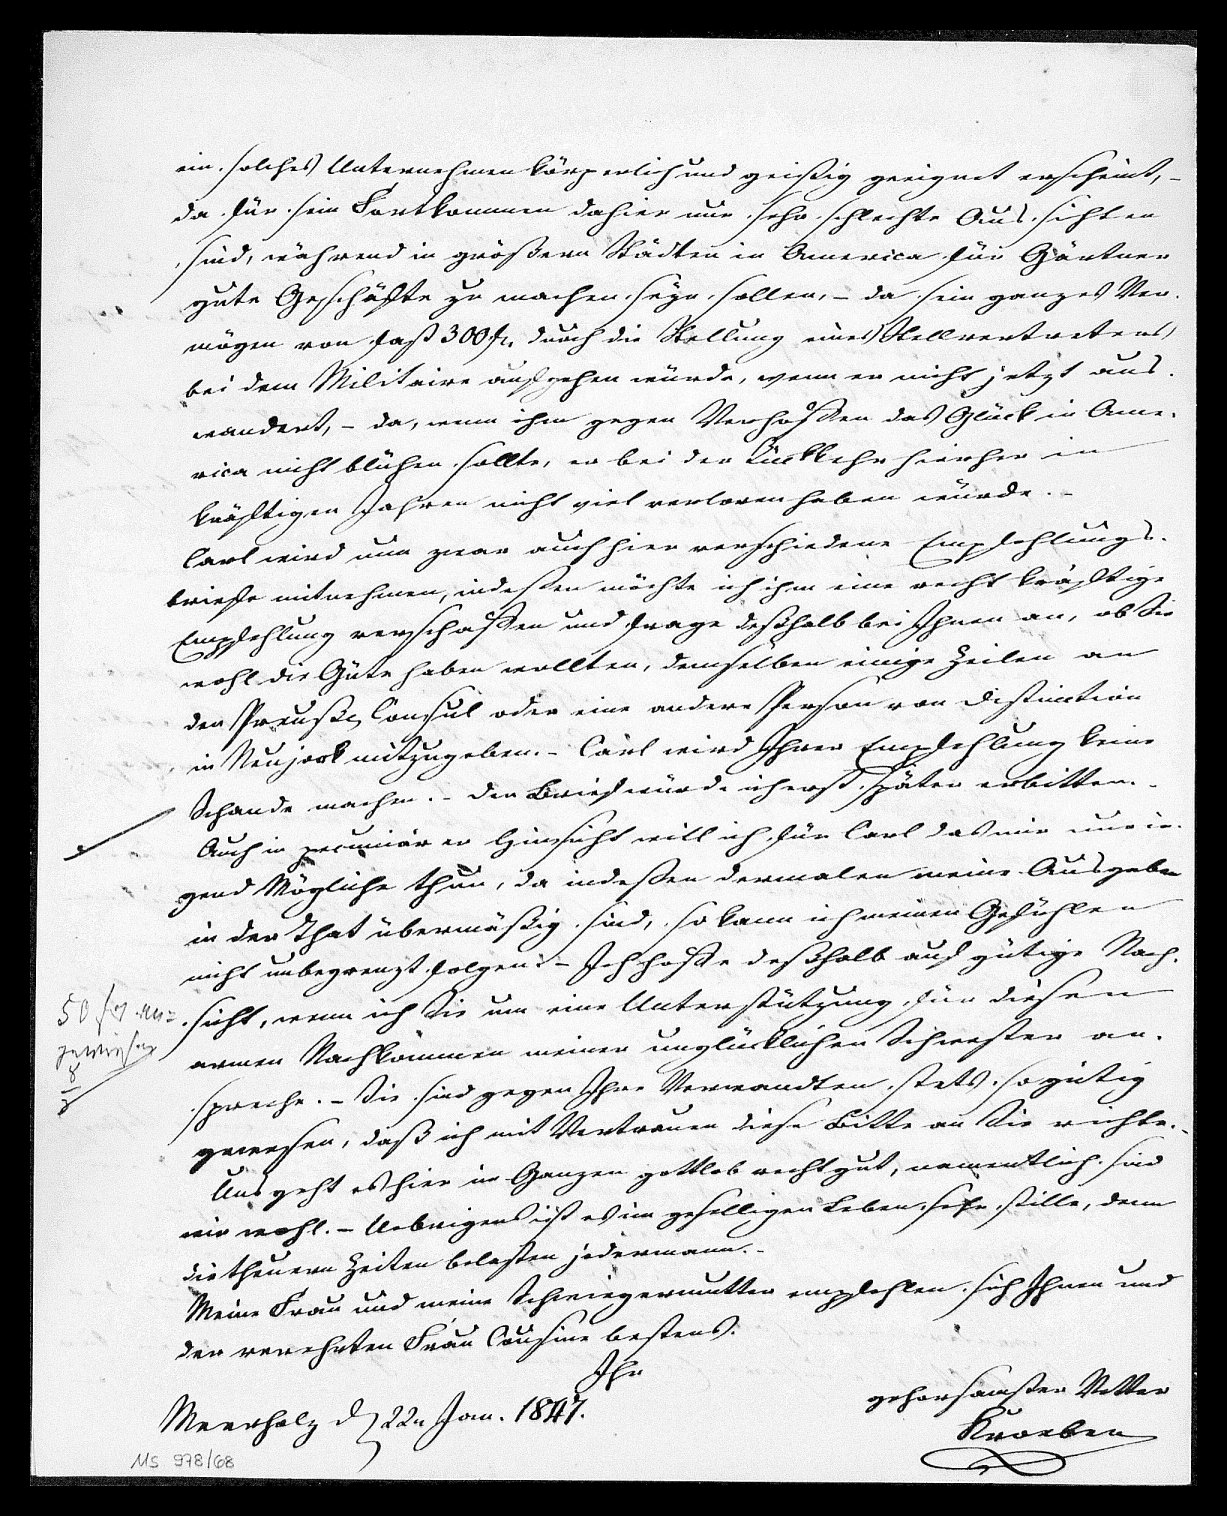 ein solches Unternehmen körperlich und geistig geeignet erscheint, –
da für sein Fortkommen dahier nur sehr schlechte Aussichten
sind, während in größern Städten in America für Gärtner
gute Geschäfte zu machen seyn sollen, – da sein ganzes Ver-
mögen von fast 300 fl. durch die Stellung eines Stellvertreters
bei dem Militaire aufgehen würde, wenn er nicht jetzt aus-
wandert, – da, wenn ihm gegen Verhoffen das Glück in Ame-
rica nicht blühen sollte, er bei der Rückkehr hierher in
kräftigen Jahren nicht viel verloren haben würde. –
Carl wird nun zwar auch hier verschiedene Empfehlungs-
briefe mitnehmen, indessen möchte ich ihm eine recht kräftige
Empfehlung verschaffen und frage deßhalb bei Ihnen an, ob Sie
wohl die Güte haben wollten, demselben einige Zeilen an
den Preuß. Consul oder eine andere Person von Distinction
in Neujork mitzugeben. – Carl wird Ihrer Empfehlung keine
Schande machen. – Den Brief würde ich erst später erbitten. –
Auch in pecuniärer Hinsicht will ich für Carl das mir nur ir-
gend Mögliche thun, da indessen dermalen meine Ausgaben
in der That übermäßig sind, so kann ich meinen Gefühlen
nicht unbegrenzt folgen. – Ich hoffe deßhalb auf gütige Nach-
sicht, wenn ich Sie um eine Unterstützung für diesen
armen Nachkommen meiner unglücklichen Schwester an-
spreche. – Sie sind gegen Ihre Verwandten stets so gütig
gewesen, daß ich mit Vertrauen diese Bitte an Sie richte. –
Uns geht es hier im Ganzen gottlob recht gut, namentlich sind
wir wohl. – Uebrigens ist es im geselligen Leben sehr stille, denn
die theuern Zeiten belasten jedermann. –
Meine Frau und meine Schwiegermutter empfehlen sich Ihnen und
der verehrten Frau Cousine bestens.
Ihr
gehorsamster Vetter
Meerholz d. 22n Jan. 1847.
50 fl an-
gewiesen
MS 978/68